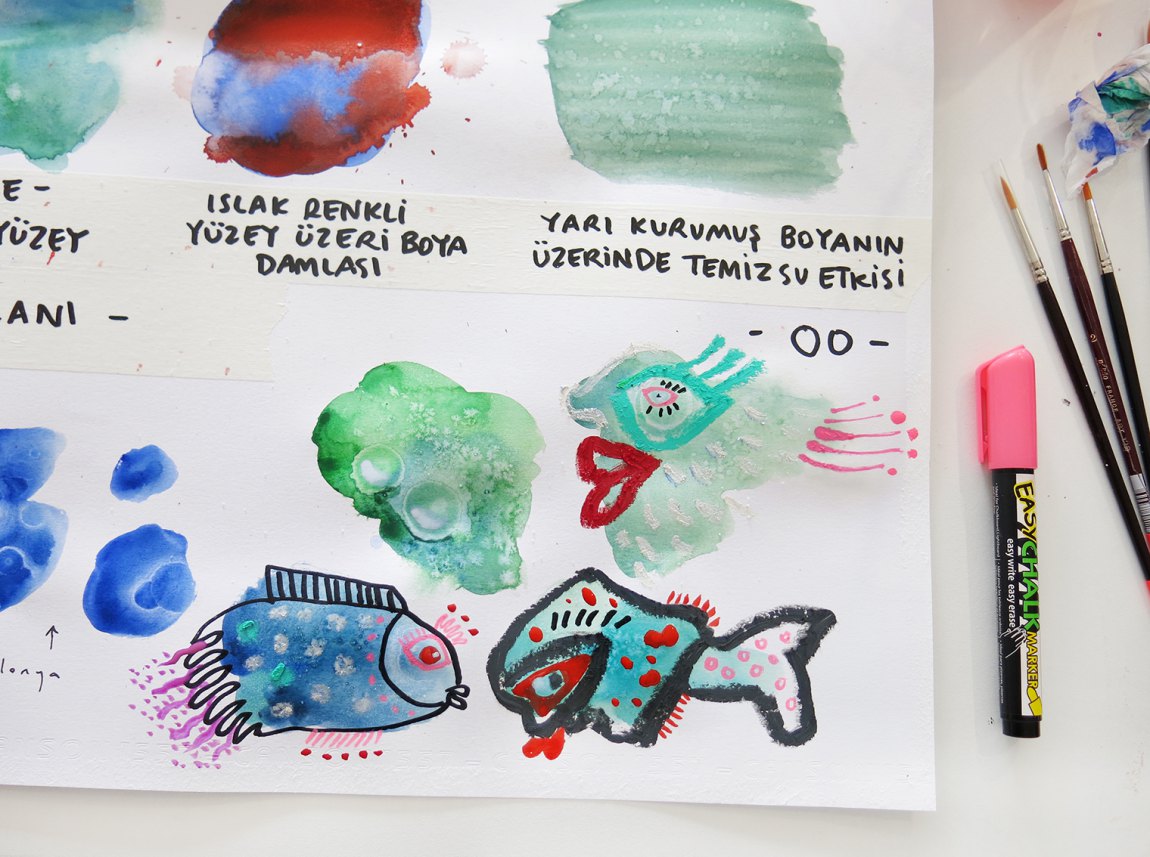 E -
YÜZEY
ISLAK RENKLİ
YÜZEY ÜZERİ BOYA
DAMLASI
YARI KURUMUŞ BOYANIN
ÜZERİNDE TEMİZ SU ETKİSİ
ANI -
- OO -
lonya
EASY CHALK MARKER
easy write easy erase